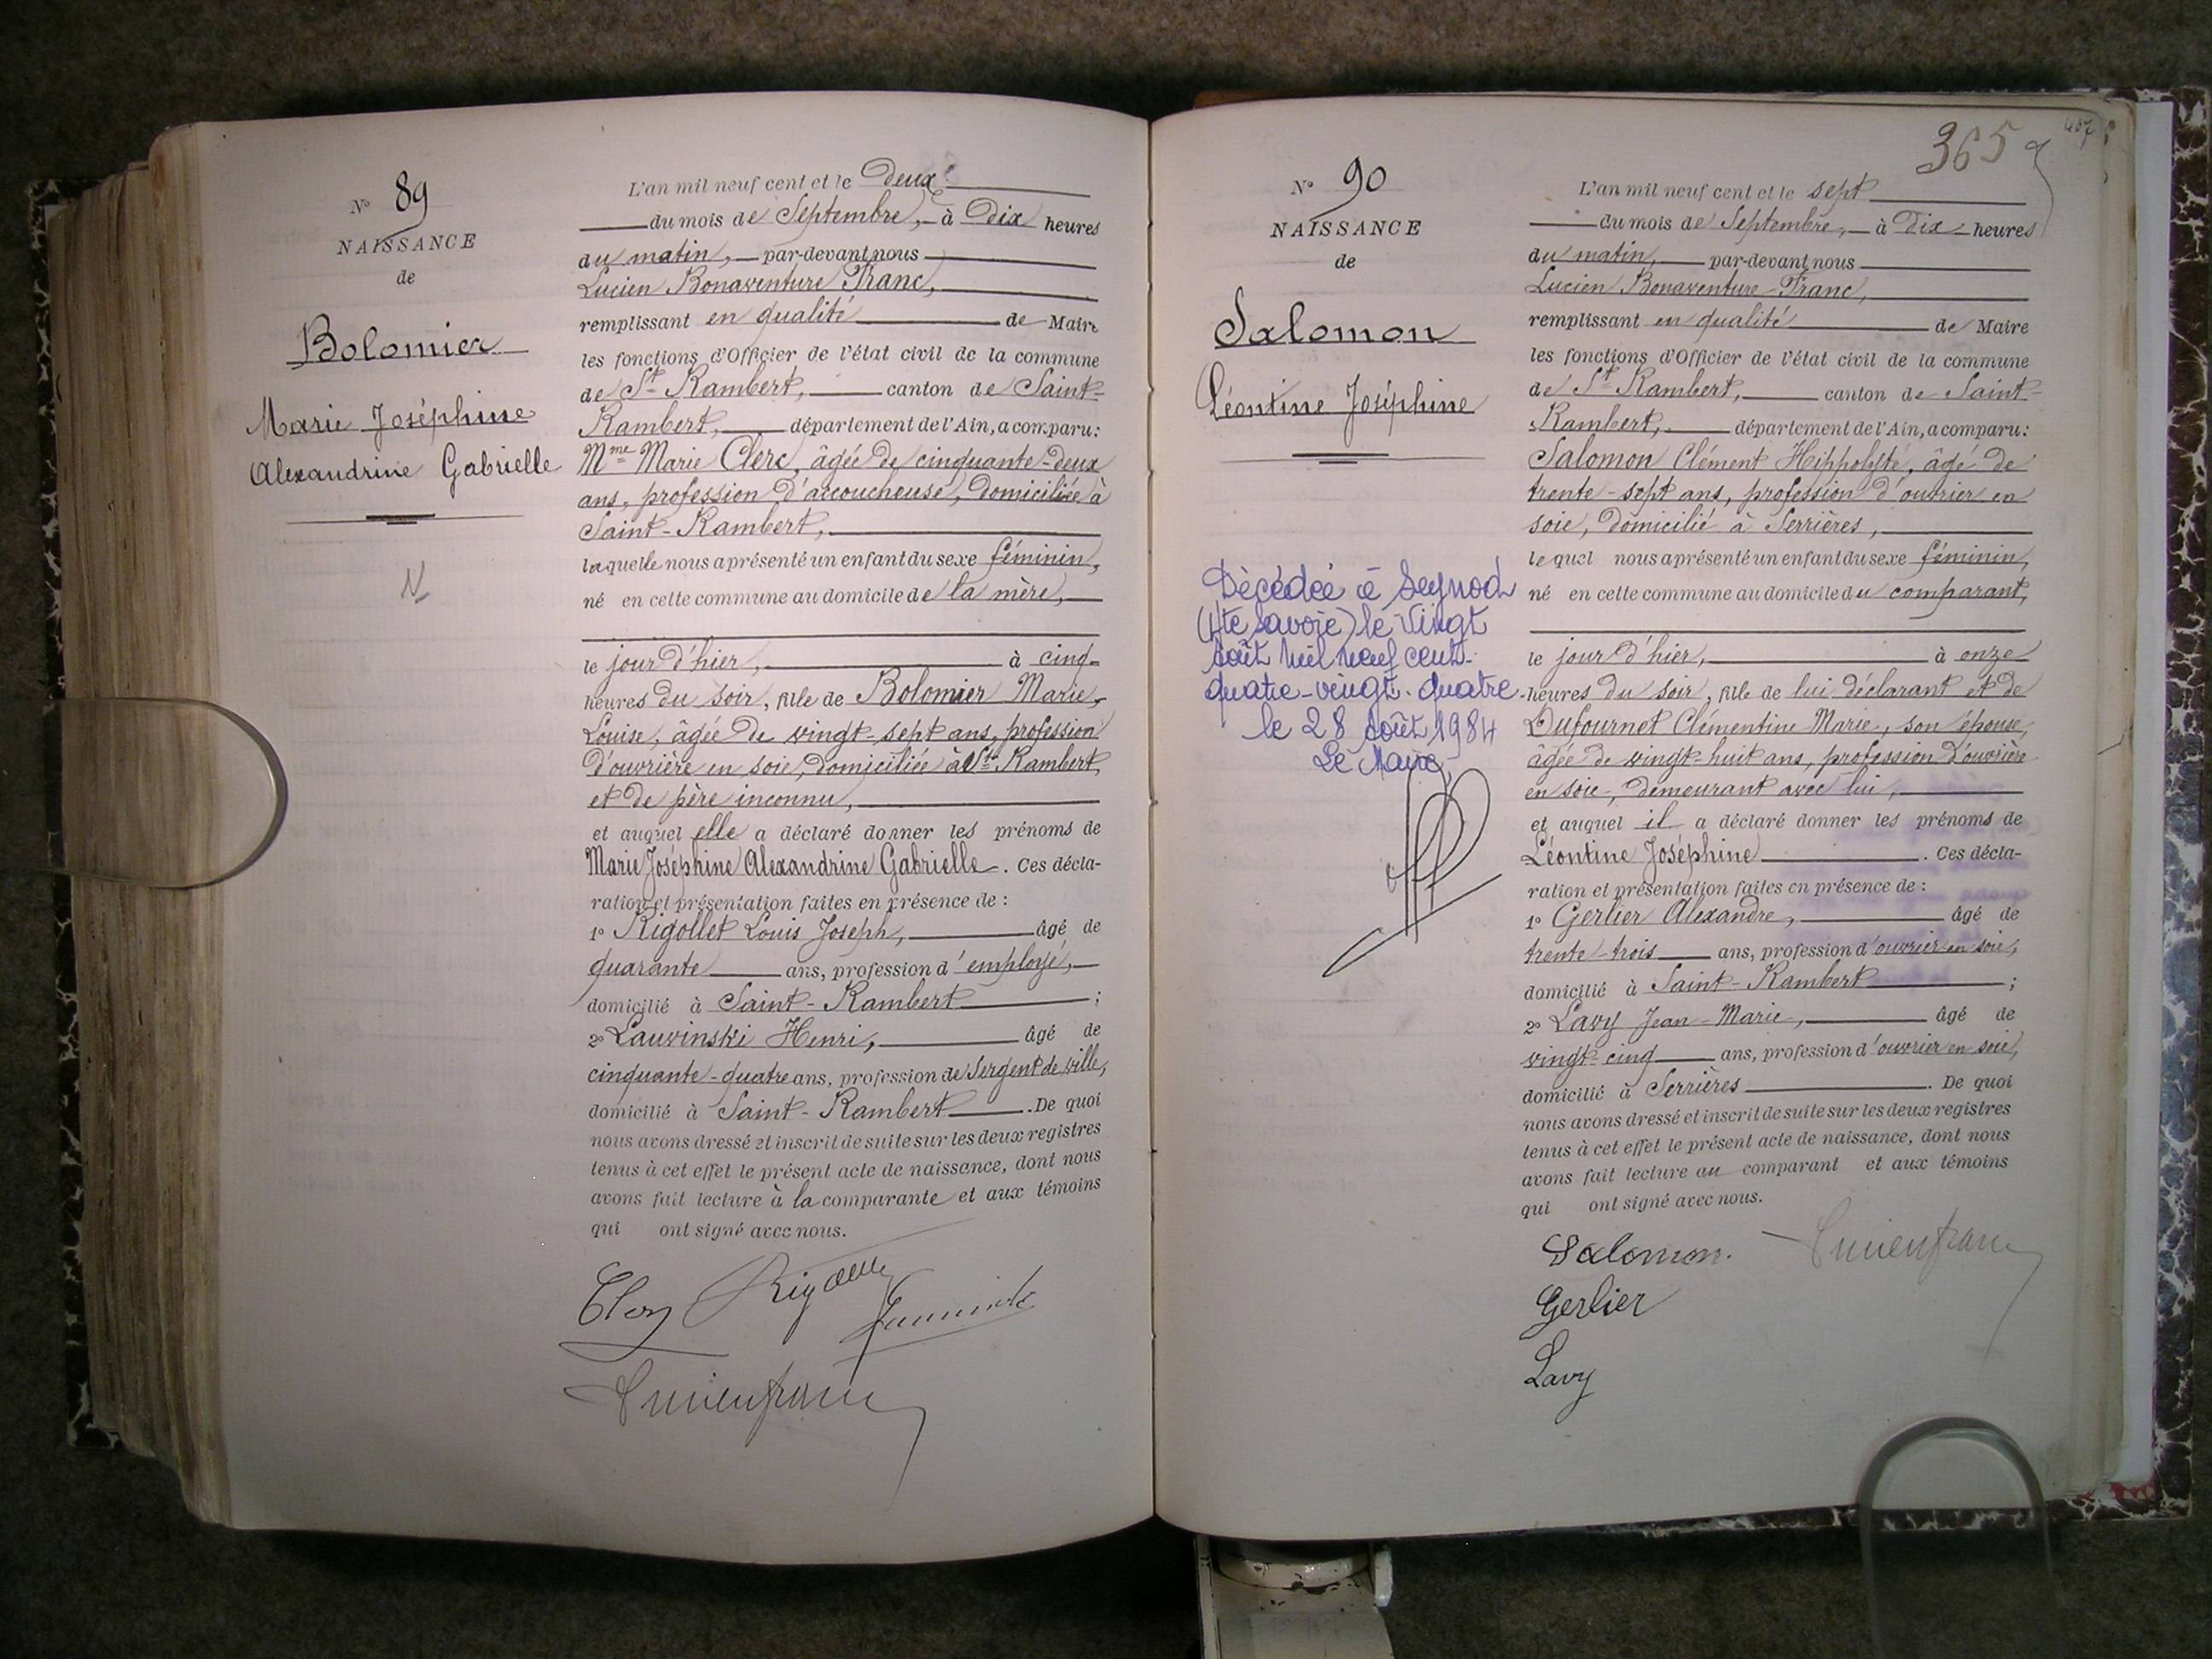 N° 89
NAISSANCE
de
Bolomier
Marie Joséphine
Alexandrine Gabrielle
N
L'an mil neuf cent et le deux
du mois de Septembre, à Dix heures
du matin, par-devant nous
Lucien Bonaventure Franc,
remplissant en qualité de Maire
les fonctions d'Officier de l'état civil de la commune
de St Rambert, canton de Saint-
Rambert, département de l'Ain, a comparu:
Mme Marie Clerc, âgée de cinquante-deux
ans, profession d'accoucheuse, domiciliée à
Saint-Rambert,
laquelle nous a présenté un enfant du sexe féminin,
né en cette commune au domicile de la mère,
le jour d'hier, à cinq
heures du soir, fille de Bolomier Marie
Louise, âgée de vingt-sept ans, profession
d'ouvrière en soie, domiciliée à St Rambert,
et de père inconnu,
et auquel elle a déclaré donner les prénoms de
Marie Joséphine Alexandrine Gabrielle. Ces décla-
ration et présentation faites en présence de :
1° Rigollet Louis Joseph, âgé de
quarante ans, profession d'employé,
domicilié à Saint-Rambert ;
2° Lauvinski Henri, âgé de
cinquante-quatre ans, profession de Sergent de ville,
domicilié à Saint-Rambert. De quoi
nous avons dressé et inscrit de suite sur les deux registres
tenus à cet effet le présent acte de naissance, dont nous
avons fait lecture à la comparante et aux témoins
qui ont signé avec nous.
Lucien franc
365
407
N° 90
NAISSANCE
de
Salomon
Léontine Joséphine
Décédée à Seynod
(Hte Savoie) le vingt
août mil neuf cent
quatre-vingt-quatre
le 28 août 1984
Le Maire,
L'an mil neuf cent et le sept
du mois de Septembre, à Dix heures
du matin, par-devant nous
Lucien Bonaventure Franc,
remplissant en qualité de Maire
les fonctions d'Officier de l'état civil de la commune
de St Rambert, canton de Saint-
Rambert, département de l'Ain, a comparu:
Salomon Clément Hippolyte, âgé de
trente-sept ans, profession d'ouvrier en
soie, domicilié à Serrières,
lequel nous a présenté un enfant du sexe féminin,
né en cette commune au domicile du comparant,
le jour d'hier, à onze
heures du soir, fille de lui déclarant et de
Dufournet Clémentine Marie, son épouse,
âgée de vingt-huit ans, profession d'ouvrière
en soie, demeurant avec lui,
et auquel il a déclaré donner les prénoms de
Léontine Joséphine. Ces décla-
ration et présentation faites en présence de :
1° Gerlier Alexandre, âgé de
trente-trois ans, profession d'ouvrier en soie,
domicilié à Saint-Rambert ;
2° Lavy Jean-Marie, âgé de
vingt-cinq ans, profession d'ouvrier en soie,
domicilié à Serrières. De quoi
nous avons dressé et inscrit de suite sur les deux registres
tenus à cet effet le présent acte de naissance, dont nous
avons fait lecture au comparant et aux témoins
qui ont signé avec nous.
Salomon. Lucien franc
Gerlier
Lavy